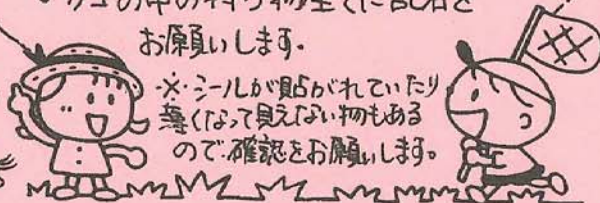 カゴの中の持ち物全てに記名を
お願いします。
※シールが剥がれていたり
薄くなって見えない物もある
ので、確認をお願いします。